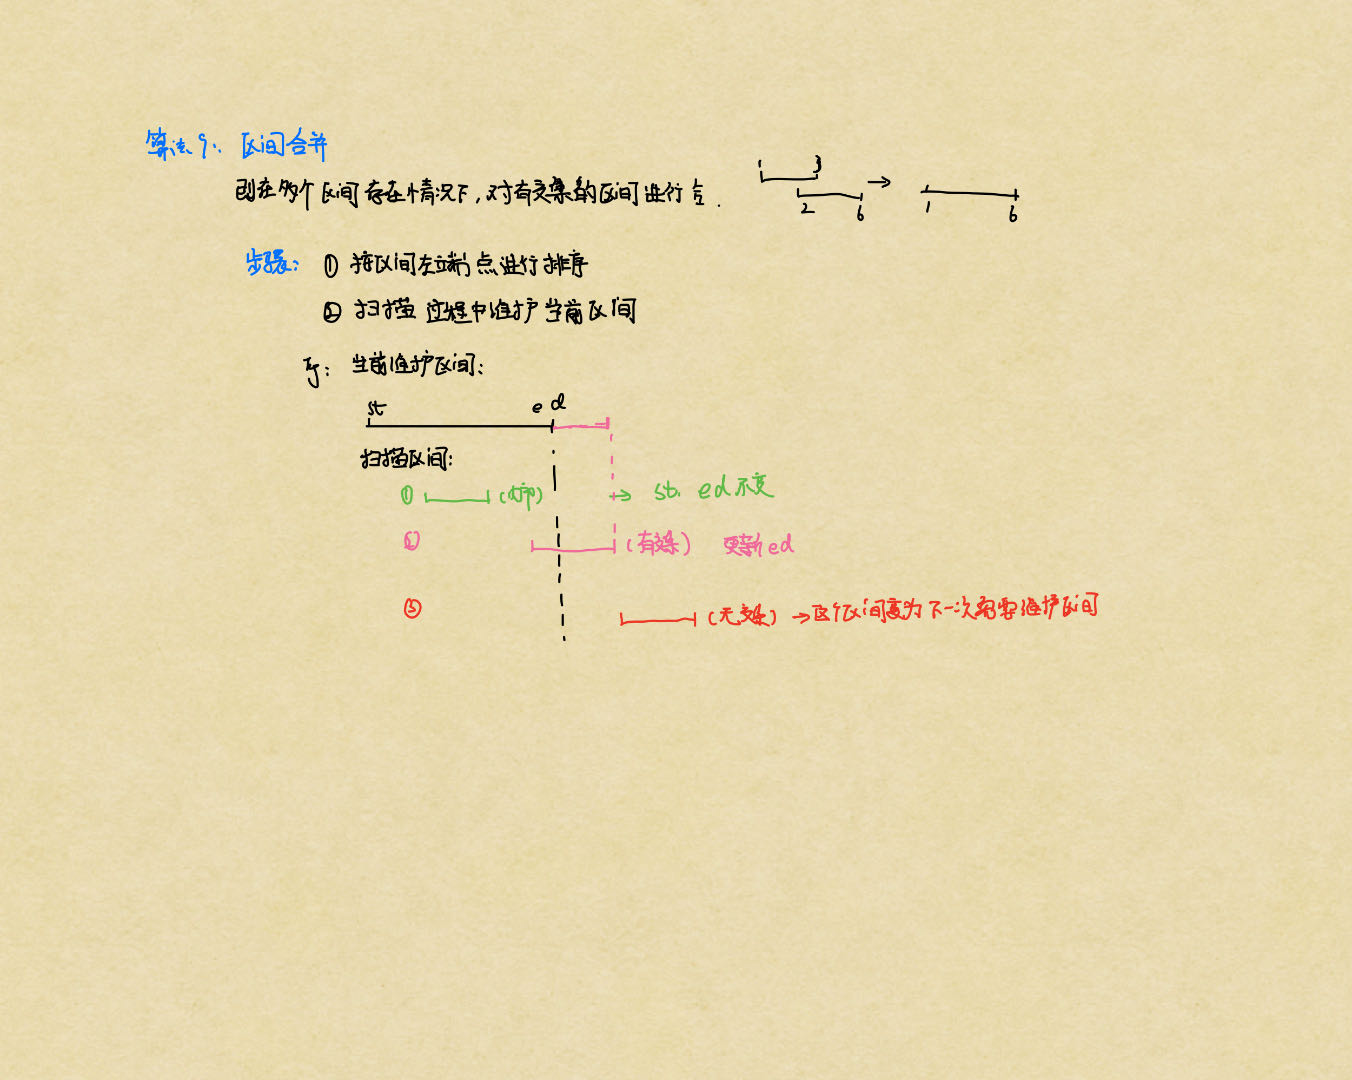 算法9: 区间合并
即在多个区间存在情况下,对有交集的区间进行合.
1 3
2 6
→
1 6
步骤: ① 按区间左端点进行排序
② 扫描过程中维护当前区间
当前维护区间:
st ed
扫描区间:
① (内部) → st. ed 不变
② (有交集) 更新ed
③ (无交集) → 这个区间变为下一次需要维护区间